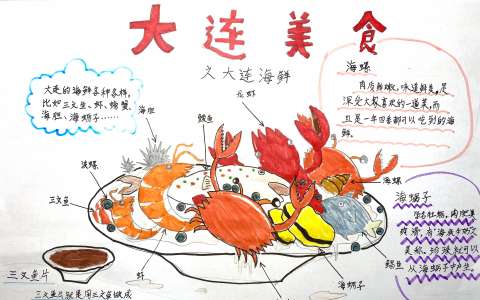 大连美食
之大连海鲜
大连的海鲜各种各样,
比如三文鱼、虾、螃蟹,
海胆、海蛎子……
海螺
肉质细腻,味道鲜美,是
深受大家喜欢的一道菜,而
且是一年四季都可以吃到的海
鲜。
龙虾
海胆
鲅鱼
扇螺
三文鱼
海螺
海蛎子
学名牡蛎,肉肥美
爽滑,有"海底牛奶"之
美称,珍珠就可以
从海蛎子中产生。
鲳鱼
虾
海蛎子
三文鱼片
三文鱼片就是用三文鱼做成